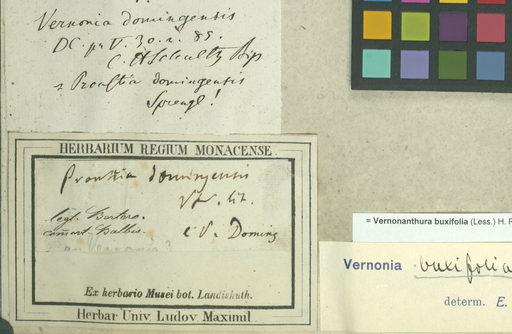 Vernonia domingensis
DC. pr. V. 30. n. 85.
C. H. Schultz Bip
= Proustia domingensis
Sprengl!
HERBARIUM REGIUM MONACENSE
Proustia domingensis
lit.
legt. Bertero.
comm. Balbis.
Doming
an Vernonia?
Ex herbario Musei bot. Landishuth.
Herbar Univ. Ludov. Maximil.
= Vernonanthura buxifolia (Less.) H. R
Vernonia buxifolia
determ. E.